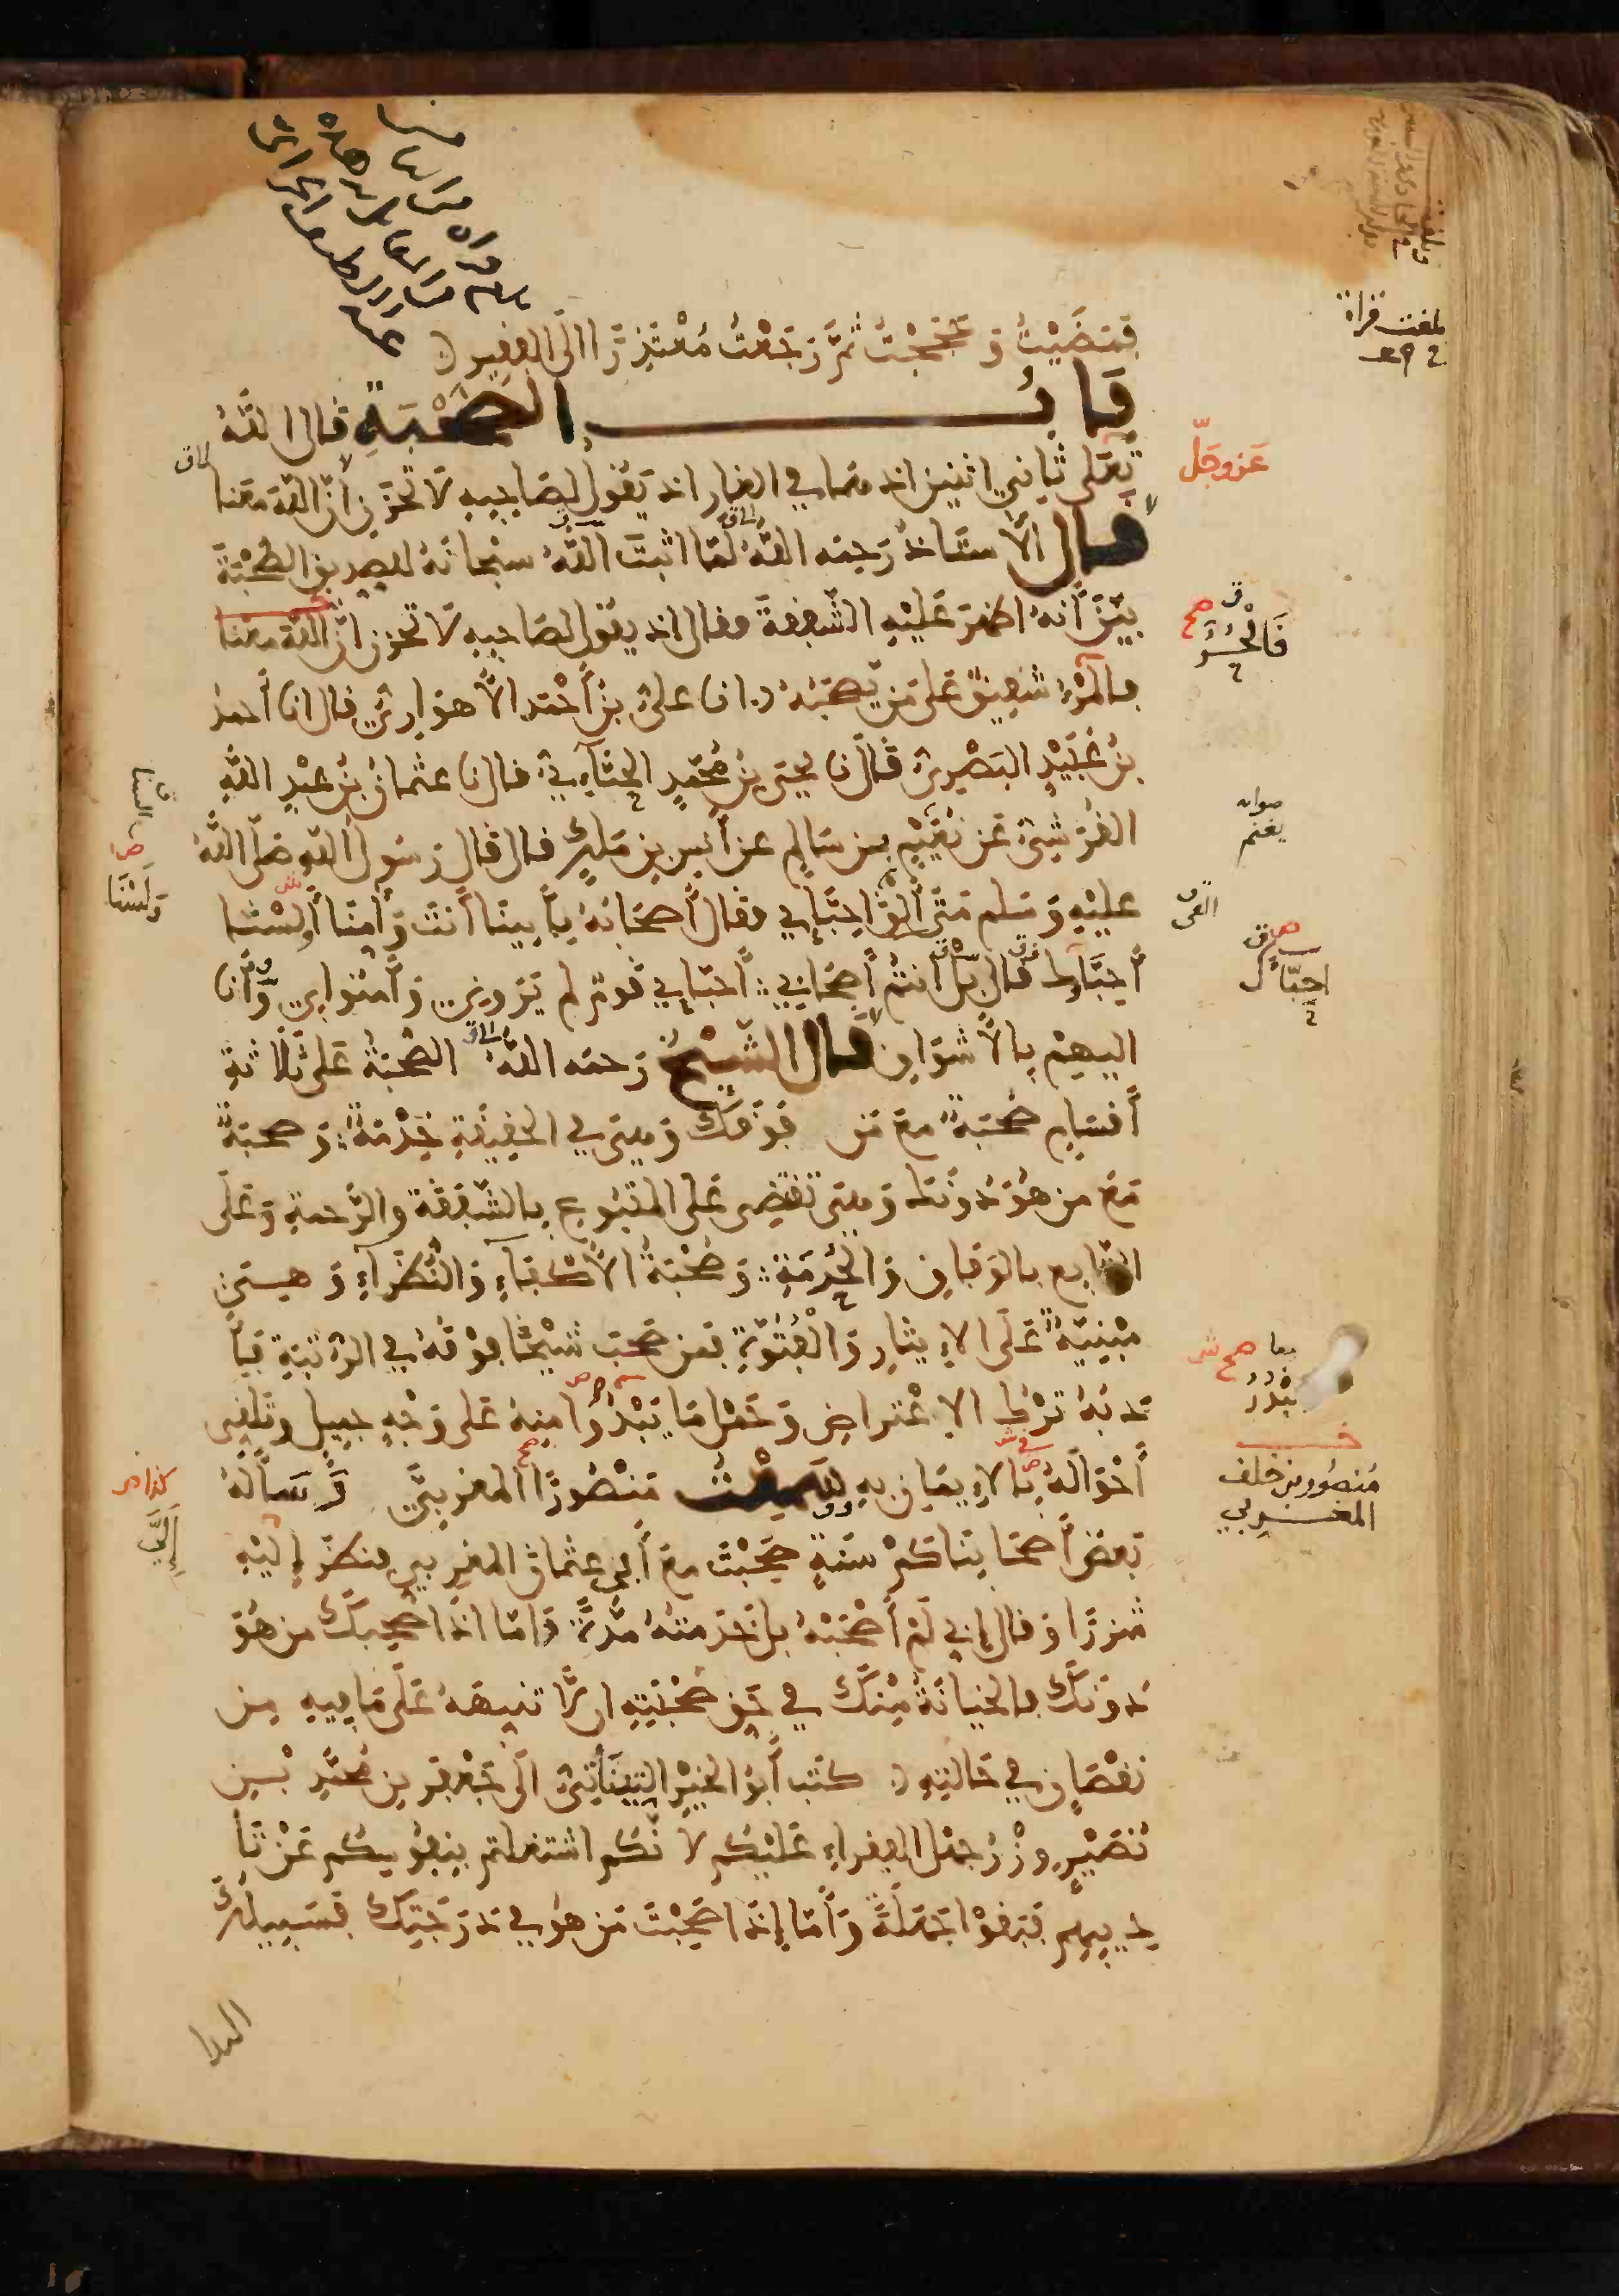 فمضيت وحججت ثم رجعت معتذرا الى الفقير
باب الصحبة قال الله
تعلى ثاني اثنين اذ هما في الغار اذ يقول لصاحبه لا تحزن ان الله معنا
عز وجل
قال الاستاذ رحمه الله لما اثبت الله سبحانه للصديق الصحبة
بين أنه اظهر عليه الشفقة فقال اذ يقول لصاحبه لا تحزن ان الله معنا
فالحر
فالمرء شفيق على من يصحبه انا علي بن أحمد الأهوازي قال انا أحمد
بن عبيد البصري قال نا يحيى بن محمد الحنآءي قال نا عثمان بن عبد الله
القرشي عن نعيم بن سالم عن أنس بن ملك قال قال رسول الله صلى الله
صوابه
يغنم
عليه وسلم متى ألقى احبآءي فقال أصحابه بأبينا أنت وأمنا أولسنا
ولسنا
أحبآءك قال بل انتم أصحابي أحبآءي قوم لم يروني وآمنوا بي وأنا
احبآك
اليهم بالأشواق قال الشيخ رحمه الله الصحبة على ثلاثة
أقسام صحبة مع من فوقك وهى في الحقيقة خدمة وصحبة
مع من هو دونك وهى تقضي على المتبوع بالشفقة والرحمة وعلى
التابع بالوفاق والحرمة وصحبة الأكفآء والنظرآء وهي
مبنية على الإيثار والفتوة فمن صحب شيخا فوقه في الرتبة فأ
دبه ترك الاعتراض وحمل ما يبدوا منه على وجه جميل وتلقي
معا صح
يبدر
أحواله بالإيمان به سمعت منصورا المغربي وسأله
منصور بن خلف
المغربي
بعض أصحابنا كم سنة صحبت مع أبي عثمان المغربي فنظر إليه
إلي
شزرا وقال إني لم أصحبه بل خدمته مدة وامّا اذا صحبك من هو
دونك فالخيانة منك في حق صحبته ان لا تنبهه على ما فيه من
نقصان في حالته كتب أبو الخير التيناتي الى جعفر بن محمد بن
نصير وزر جهل الفقراء عليكم لانكم اشتغلتم بنفوسكم عن تأ
ديبهم فبقوا جهلة وأما إذا صحبت من هو في درجتك فسبيلك